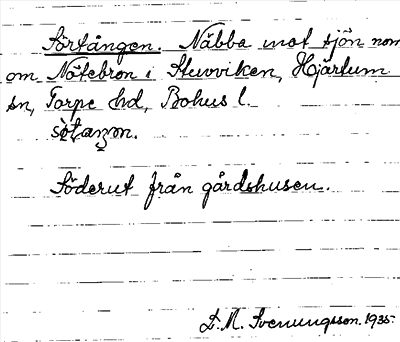 Sörtången. Näbba mot sjön nom
om Nötebron i Stuvviken, Hjärtum
sn, Torpe hd, Bohus l.
Söderut från gårdshusen.
D. M. Svenungsson. 1935.